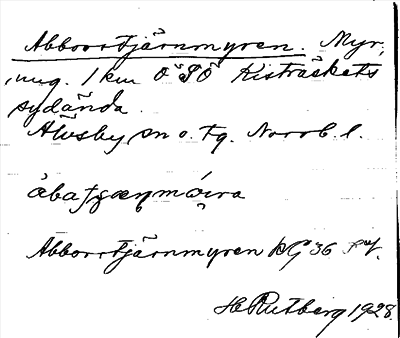 Abborrtjärnmyren. Myr,
ung. 1 km O SO Kisträskets
sydända.
Älvsby sn o. tg. Norrb. l.
Abborrtjärnmyren bG 36
H Rutberg 1928.